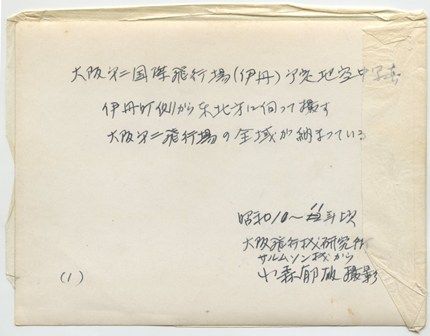 大阪第二国際飛行場(伊丹)予定地空中写真
伊丹町側から東北方に向って撮す
大阪第二飛行場の全域が納まっている
昭和10〜11年頃
大阪飛行機研究所
サルムソン機から
小森郁雄 撮影
(1)